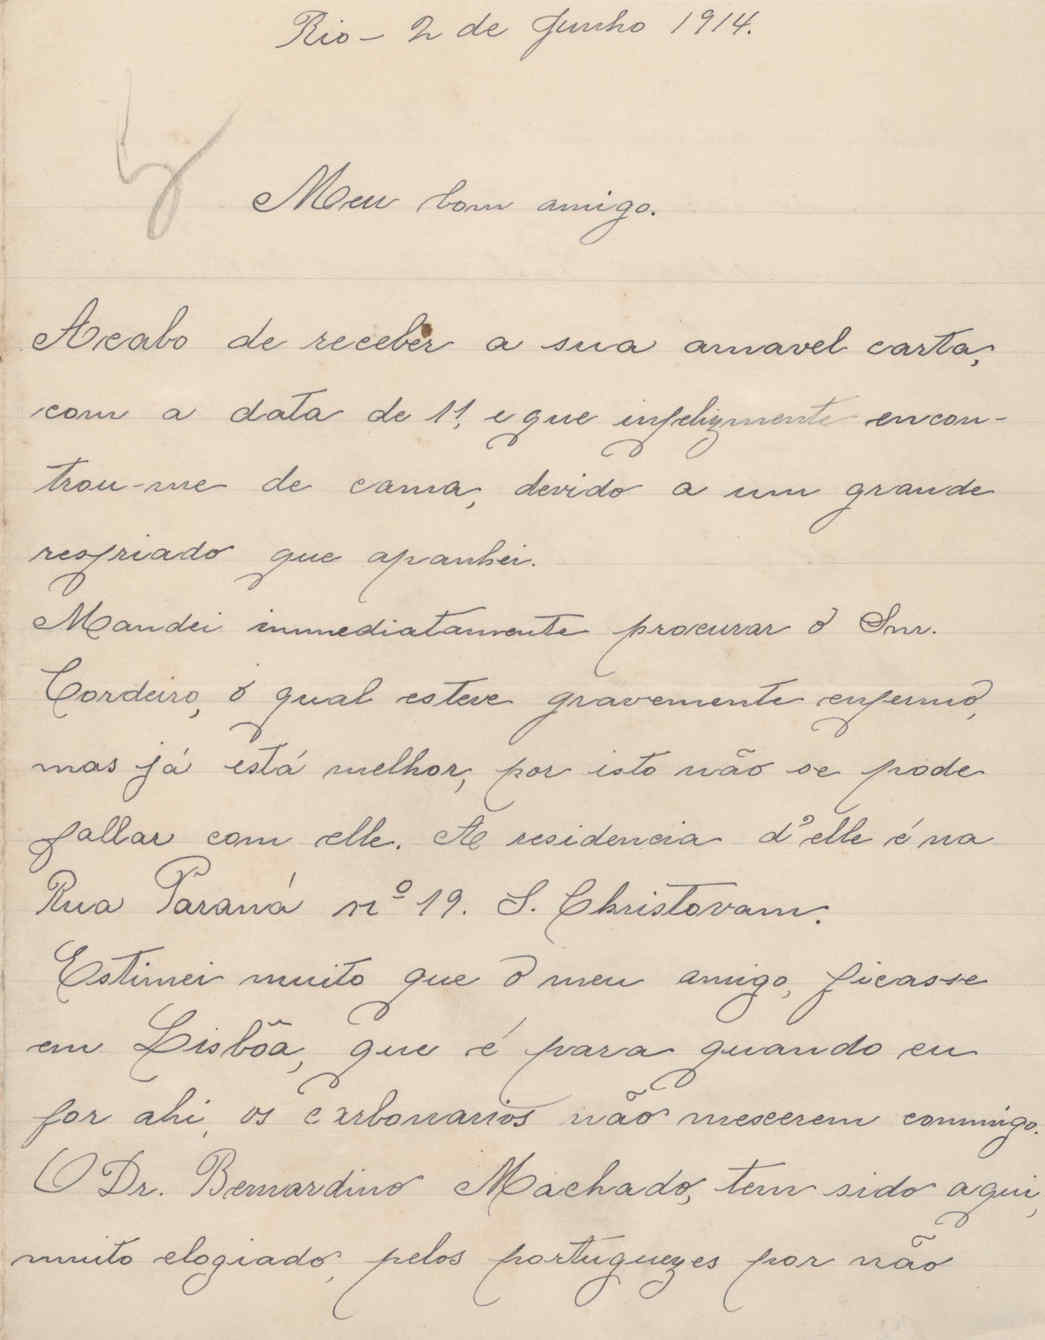 Rio - 2 de Junho 1914.
Meu bom amigo.
Acabo de receber a sua amavel carta,
com a data de 11, e que infelizmente encon-
trou-me de cama, devido a um grande
resfriado que apanhei.
Mandei immediatamente procurar o Snr.
Cordeiro, o qual esteve gravemente enfermo,
mas já está melhor, por isto não se pode
fallar com elle. A residencia d'elle é na
Rua Paraná nº 19. S. Christovam.
Estimei muito que o meu amigo, ficasse
em Lisbôa, que é para quando eu
for ahi, os carbonarios não mexerem commigo.
O Dr. Bernardino Machado, tem sido aqui,
muito elogiado, pelos portuguezes por não